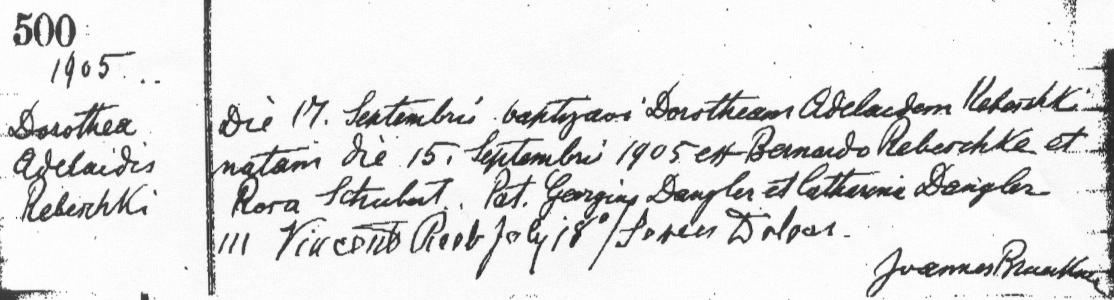 500
1905
Dorothea
Adelaidis
Reberschki
Die 17. Septembris baptizavi Dorotheam Adelaidem Reberschki
natam die 15. Septembris 1905 ex Bernardo Reberschke et
Rosa Schubert. Pat. Georgius Dangler et Catharina Dangler
III Vincent July 18
Joannes